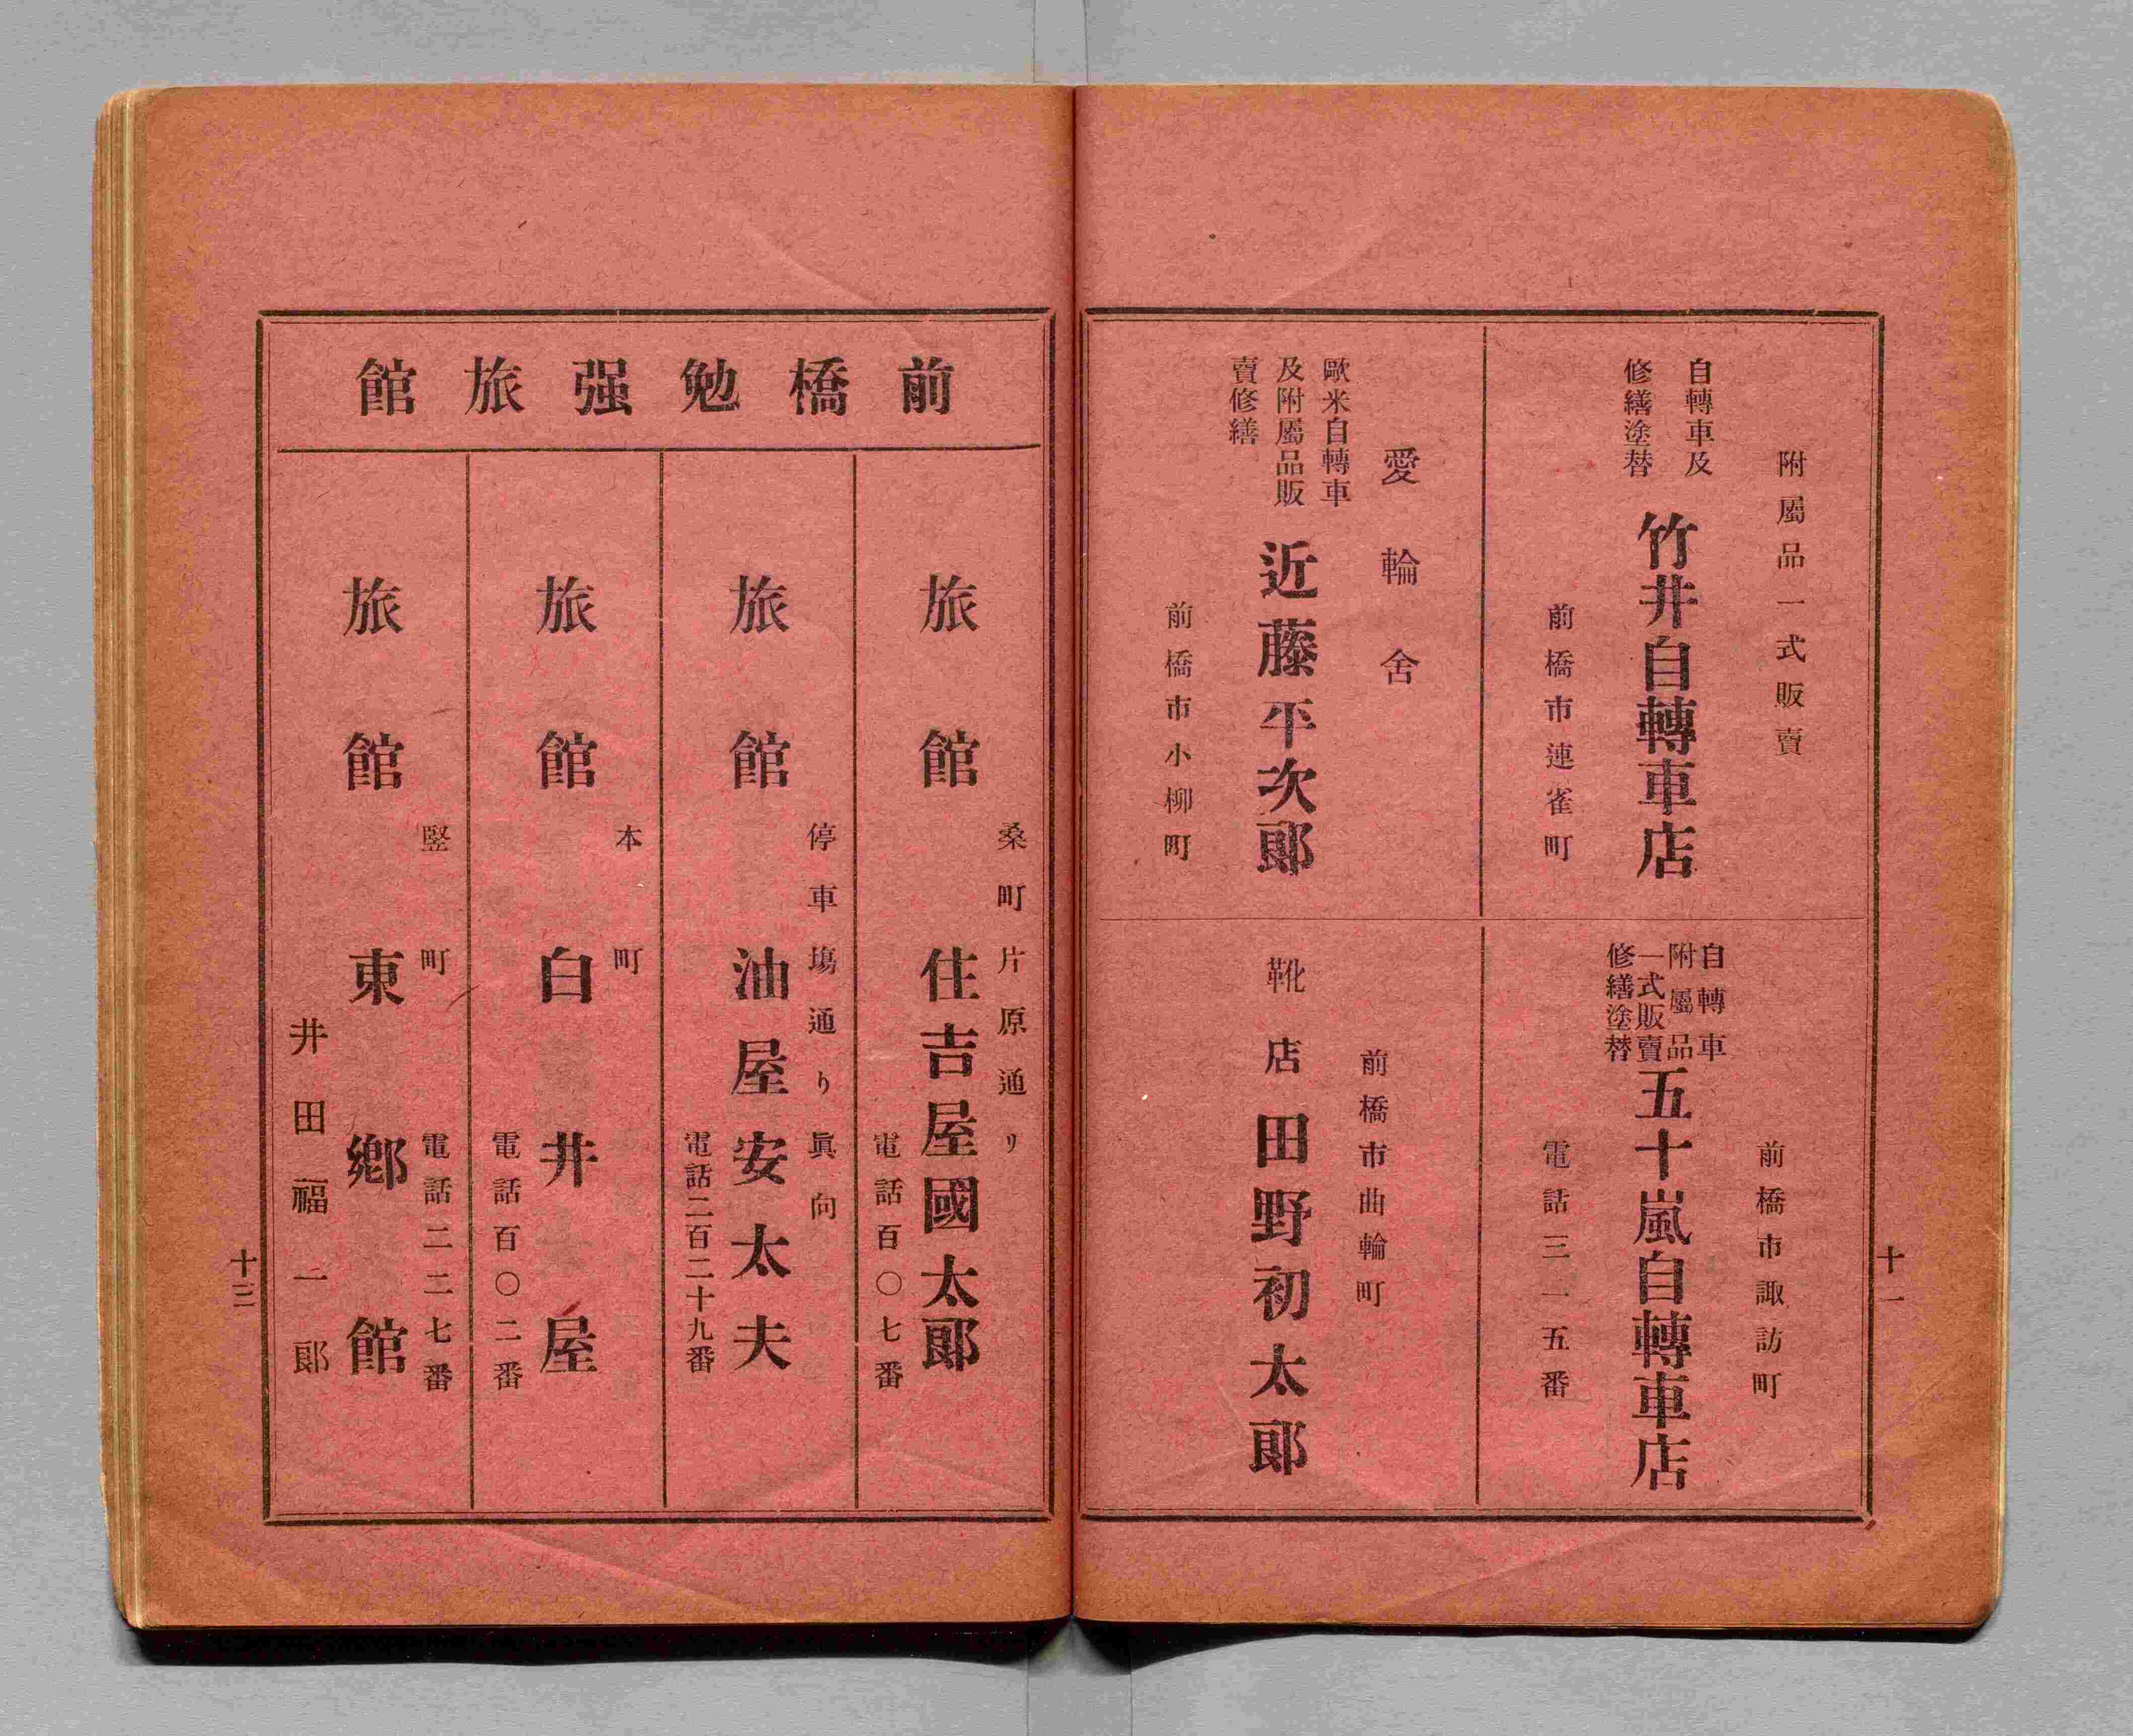 附屬品一式販賣
自轉車及
修繕塗替
竹井自轉車店
前橋市連雀町
愛輪舍
歐米自轉車
及附屬品販
賣修繕
近藤平次郞
前橋市小柳町
前橋市諏訪町
自轉車
附屬品
一式販賣
修繕塗替
五十嵐自轉車店
電話三一五番
前橋市曲輪町
靴店田野初太郞
十一
前橋勉强旅館
桑町片原通リ
旅館住吉屋國太郞
電話百〇七番
停車塲通り眞向
旅館油屋安太夫
電話二百二十九番
本町
旅館白井屋
電話百〇二番
竪町
電話二二七番
旅館東鄕館
井田福一郞
十三